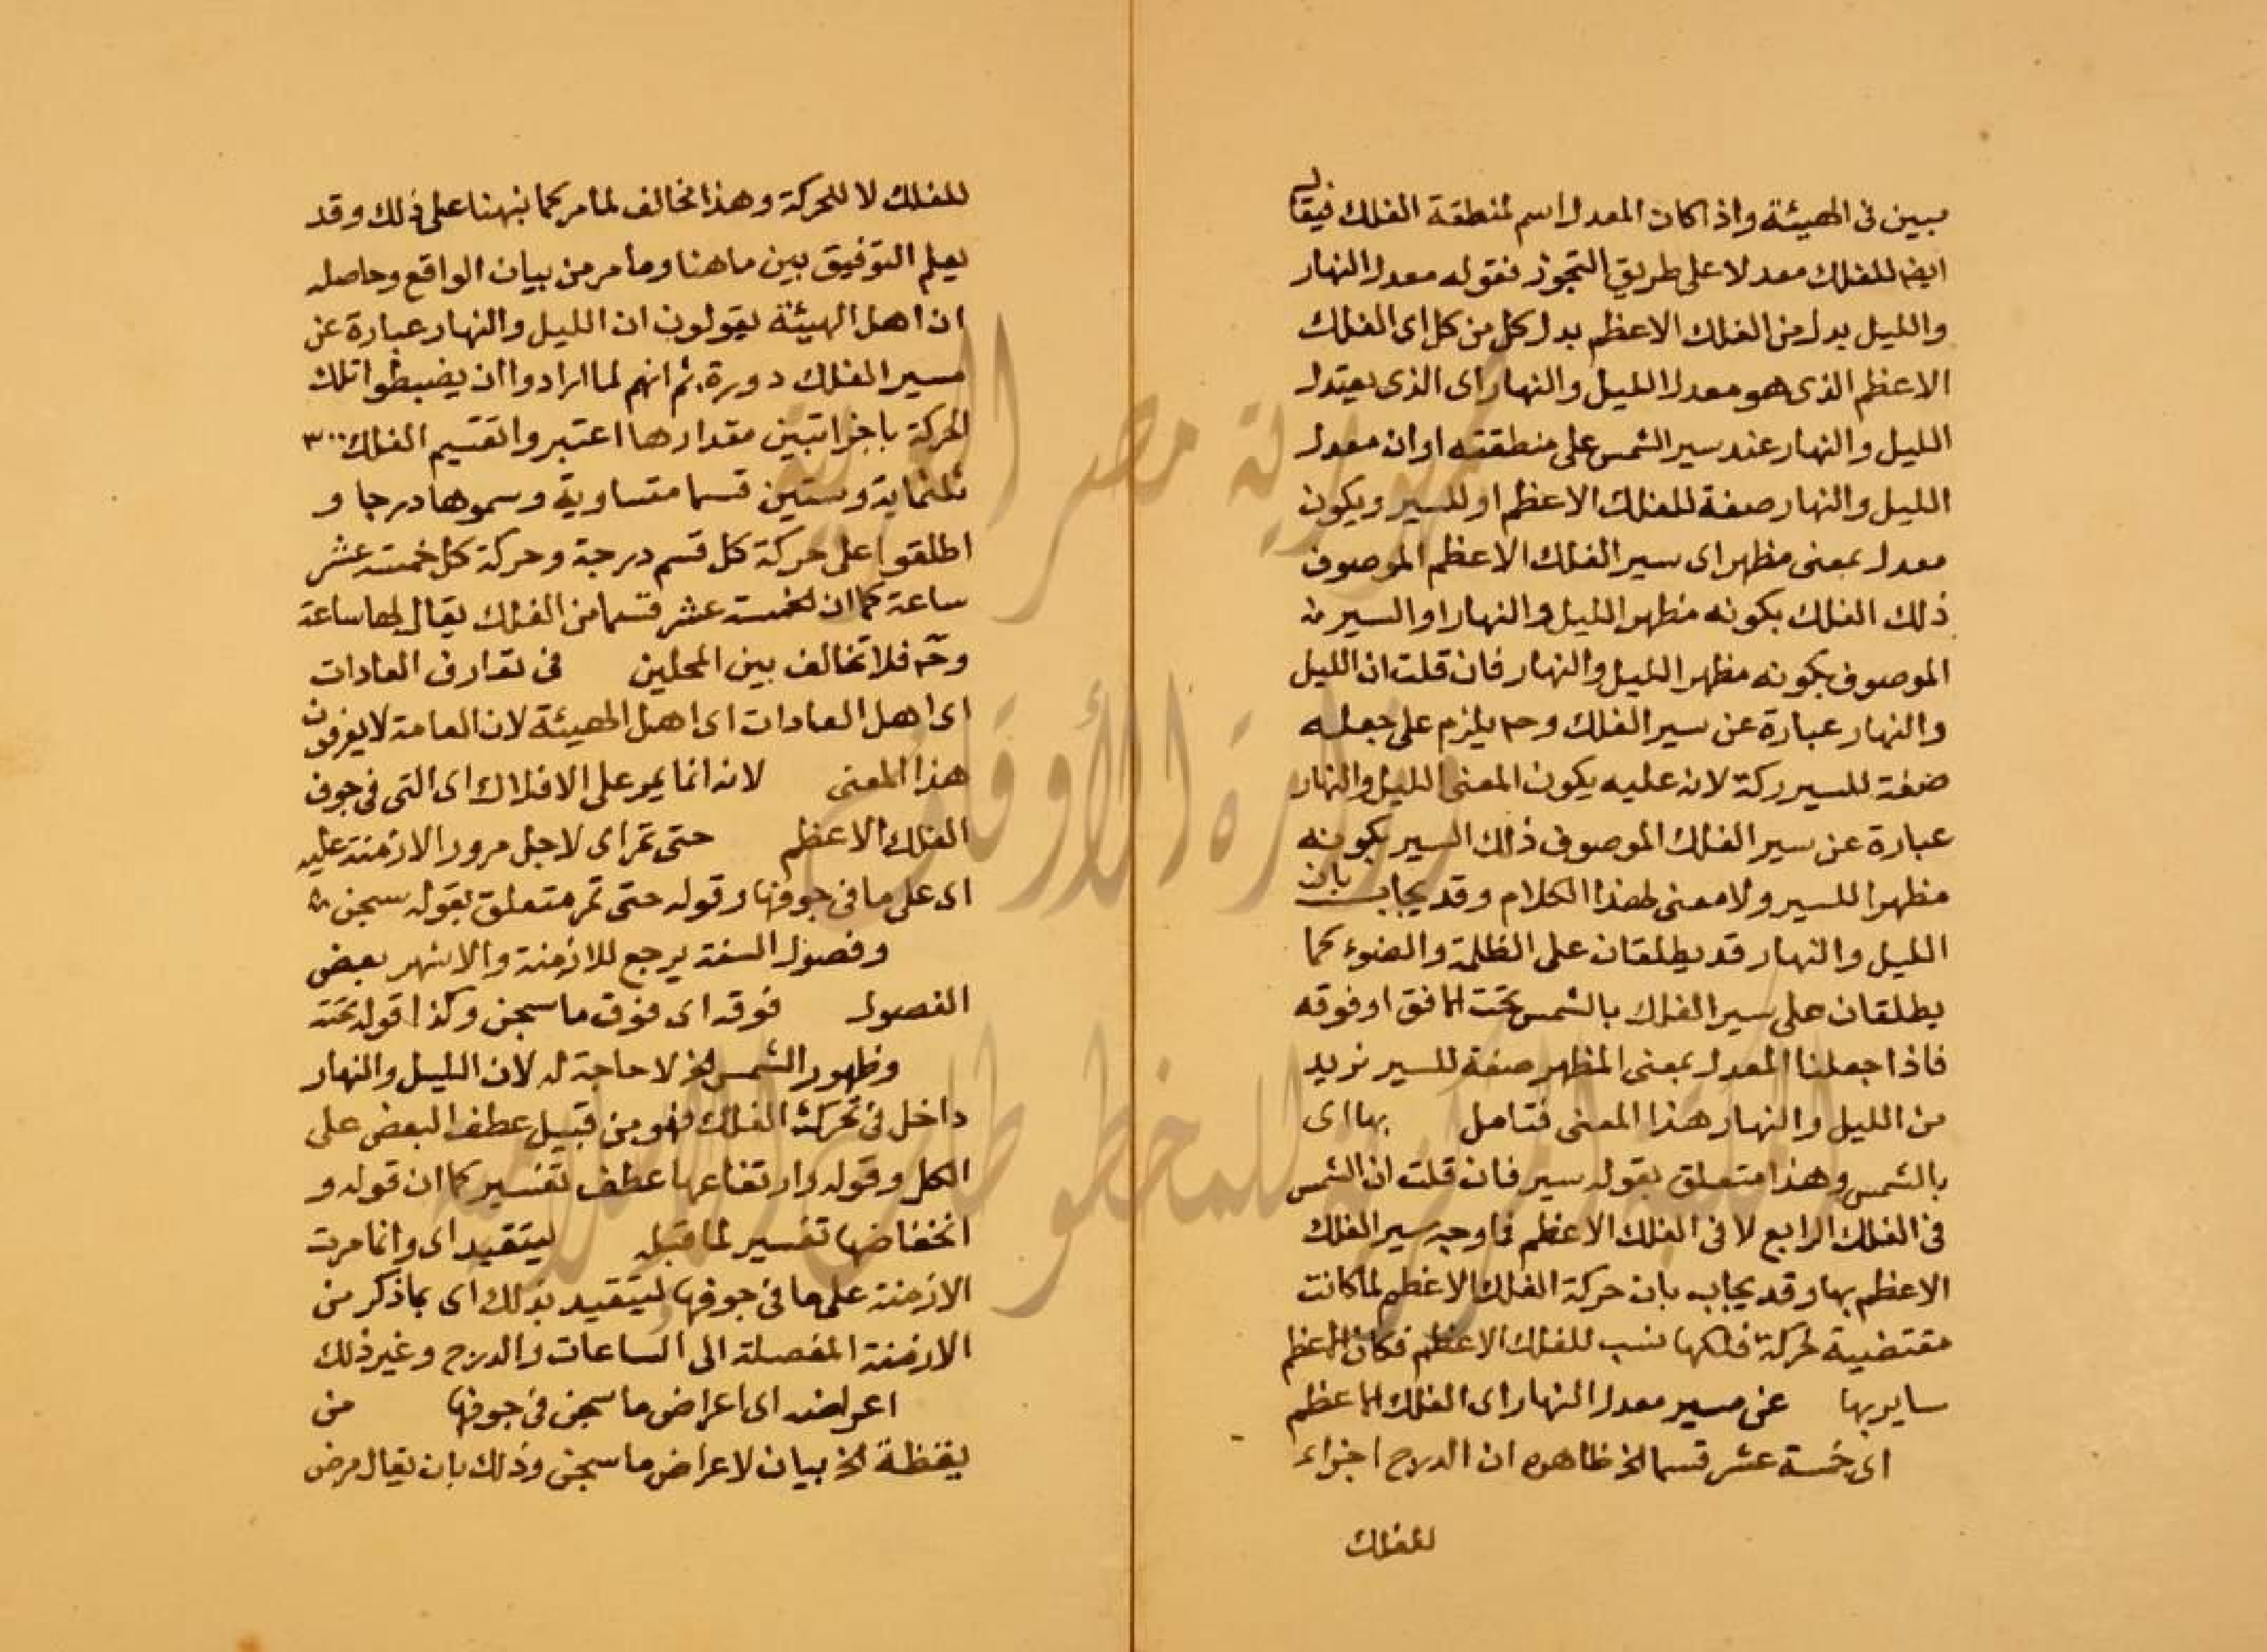 مبين فى الهيئة واذا كان المعدل اسم لمنطقة الفلك فيقال
ايضا للفلك معدلا على طريق التجوز فقوله معدل النهار
والليل بدل من الفلك الاعظم بدل كل من كل اى الفلك
الاعظم الذى هو معدل الليل والنهار اى الذى يعتدل
الليل والنهار عند سير الشمس على منطقته او ان معدل
الليل والنهار صفة للفلك الاعظم او للسير ويكون
معدل بمعنى مظهر اى سير الفلك الاعظم الموصوف
ذلك الفلك بكونه مظهر الليل والنهار او السير
الموصوف بكونه مظهر الليل والنهار فان قلت ان الليل
والنهار عبارة عن سير الفلك وح يلزم على جعله
صفة للسير ركة لان عليه يكون المعنى الليل والنهار
عبارة عن سير الفلك الموصوف ذلك السير بكونه
مظهرا للسير ولا معنى لهذا الكلام وقد يجاب بان
الليل والنهار قد يطلقان على الظلمة والضوء كما
يطلقان على سير الفلك بالشمس تحت الافق او فوقه
فاذا جعلنا المعدل بمعنى المظهر صفة للسير نريد
من الليل والنهار هذا المعنى فتامل بها اى
بالشمس وهذا متعلق بقوله سير فان قلت ان الشمس
فى الفلك الرابع لا فى الفلك الاعظم فما وجه سير الفلك
الاعظم بها وقد يجاب بان حركة الفلك الاعظم لما كانت
مقتضية لحركة فلكها نسب للفلك الاعظم فكان الاعظم
ساير بها عن مسير معدل النهار اى الفلك الاعظم
اى خمسة عشر قسما الخ ظاهره ان الدرج اجزاء
للفلك
للفلك لا للحركة وهذا مخالف لما مر كما نبهنا على ذلك وقد
يعلم التوفيق بين ما هنا وما مر من بيان الواقع وحاصله
ان اهل الهيئة يقولون ان الليل والنهار عبارة عن
مسير الفلك دورة ثم انهم لما ارادوا ان يضبطوا تلك
الحركة باجزا تبين مقدارها اعتبروا تقسيم الفلك
ثلثماية وستين قسما متساوية وسموها درجا و
اطلقوا على حركة كل قسم درجة وحركة كل خمسة عشر
ساعة كما ان لخمسة عشر قسما من الفلك يقال لها ساعة
وح فلا تخالف بين المحلين فى تعارف العادات
اى اهل العادات اى اهل الهيئة لان العامة لا يعرفون
هذا المعنى لانه انما يمر على الافلاك اى التى فى جوف
الفلك الاعظم حتى تمر اى لاجل مرور الازمنة عليه
اى على ما فى جوفها وقوله حتى تمر متعلق بقوله سجن
وفصول السنة يرجع للازمنة والاشهر بعض
الفصول فوقه اى فوق ما سجن وكذا قوله تحته
وظهور الشمس الخ لا حاجة له لان الليل والنهار
داخل فى تحركة الفلك فهو من قبيل عطف البعض على
الكل وقوله وارتفاعها عطف تفسير كما ان قوله و
انخفاضها تفسير لما قبله ليتقيد اى وانما مرت
الازمنة على ما فى جوفها ليتقيد بذلك اى بما ذكر من
الازمنة المفصلة الى الساعات والدرج وغير ذلك
اعراضه اى اعراض ما سجن فى جوفها من
يقظة الخ بيان لاعراض ما سجن وذلك بان يقال مرض
جمهورية مصر العربية
وزارة الأوقاف